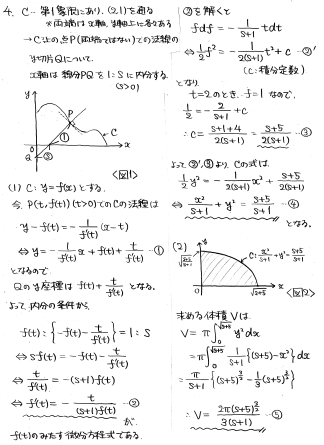 4. C … 第1象限にあり、(2,1)を通る
※両端はx軸, y軸上に各々ある
→ C上の点P(両端ではない)での法線の
y切片Qについて、
x軸は線分PQを1:Sに内分する
(S>0)
y
P
①
C
0
x
Q
Ⓢ
<図1>
(1) C: y=f(x)とする。
今、P(t, f(t)) (t>0)でのCの法線は
y-f(t) = -1/f'(t) (x-t)
⇔ y = -1/f'(t) x + f(t) + t/f'(t) …①
となるので
Qのy座標は f(t) + t/f'(t) となる。
よって内分の条件から、
f(t) : {-f(t) - t/f'(t)} = 1 : S
⇔ Sf(t) = -f(t) - t/f'(t)
⇔ t/f'(t) = -(S+1)f(t)
⇔ f'(t) = - t/((S+1)f(t)) …②
が、
f(t)のみたす微分方程式である。
②を解くと
fdf = - 1/(S+1) tdt
⇔ 1/2 f² = - 1/(2(S+1)) t² + c …②'
(c:積分定数)
となり
t=2のとき、f=1なので、
1/2 = - 2/(S+1) + c
∴ c = (S+1+4)/(2(S+1)) = (S+5)/(2(S+1)) …③
よって②',③より、Cの式は、
1/2 y² = - 1/(2(S+1)) x² + (S+5)/(2(S+1))
⇔ x²/(S+1) + y² = (S+5)/(S+1) …④
となる。
(2)
y
√((S+5)/(S+1))
C: x²/(S+1) + y² = (S+5)/(S+1)
0
√(S+5)
x
<図2>
求める体積Vは、
V = π∫₀^√(S+5) y² dx
= π∫₀^√(S+5) 1/(S+1) {(S+5) - x²} dx
= π/(S+1) {(S+5)^(3/2) - 1/3 (S+5)^(3/2)}
∴ V = 2π(S+5)^(3/2) / (3(S+1)) …⑤